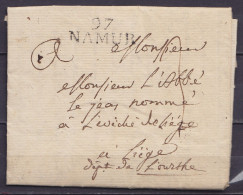 97
NAMUR
Monsieur
Monsieur L'Abbé
le jeas nommé
à L'evêché de Liége
a Liége
dépt de L'ourthe